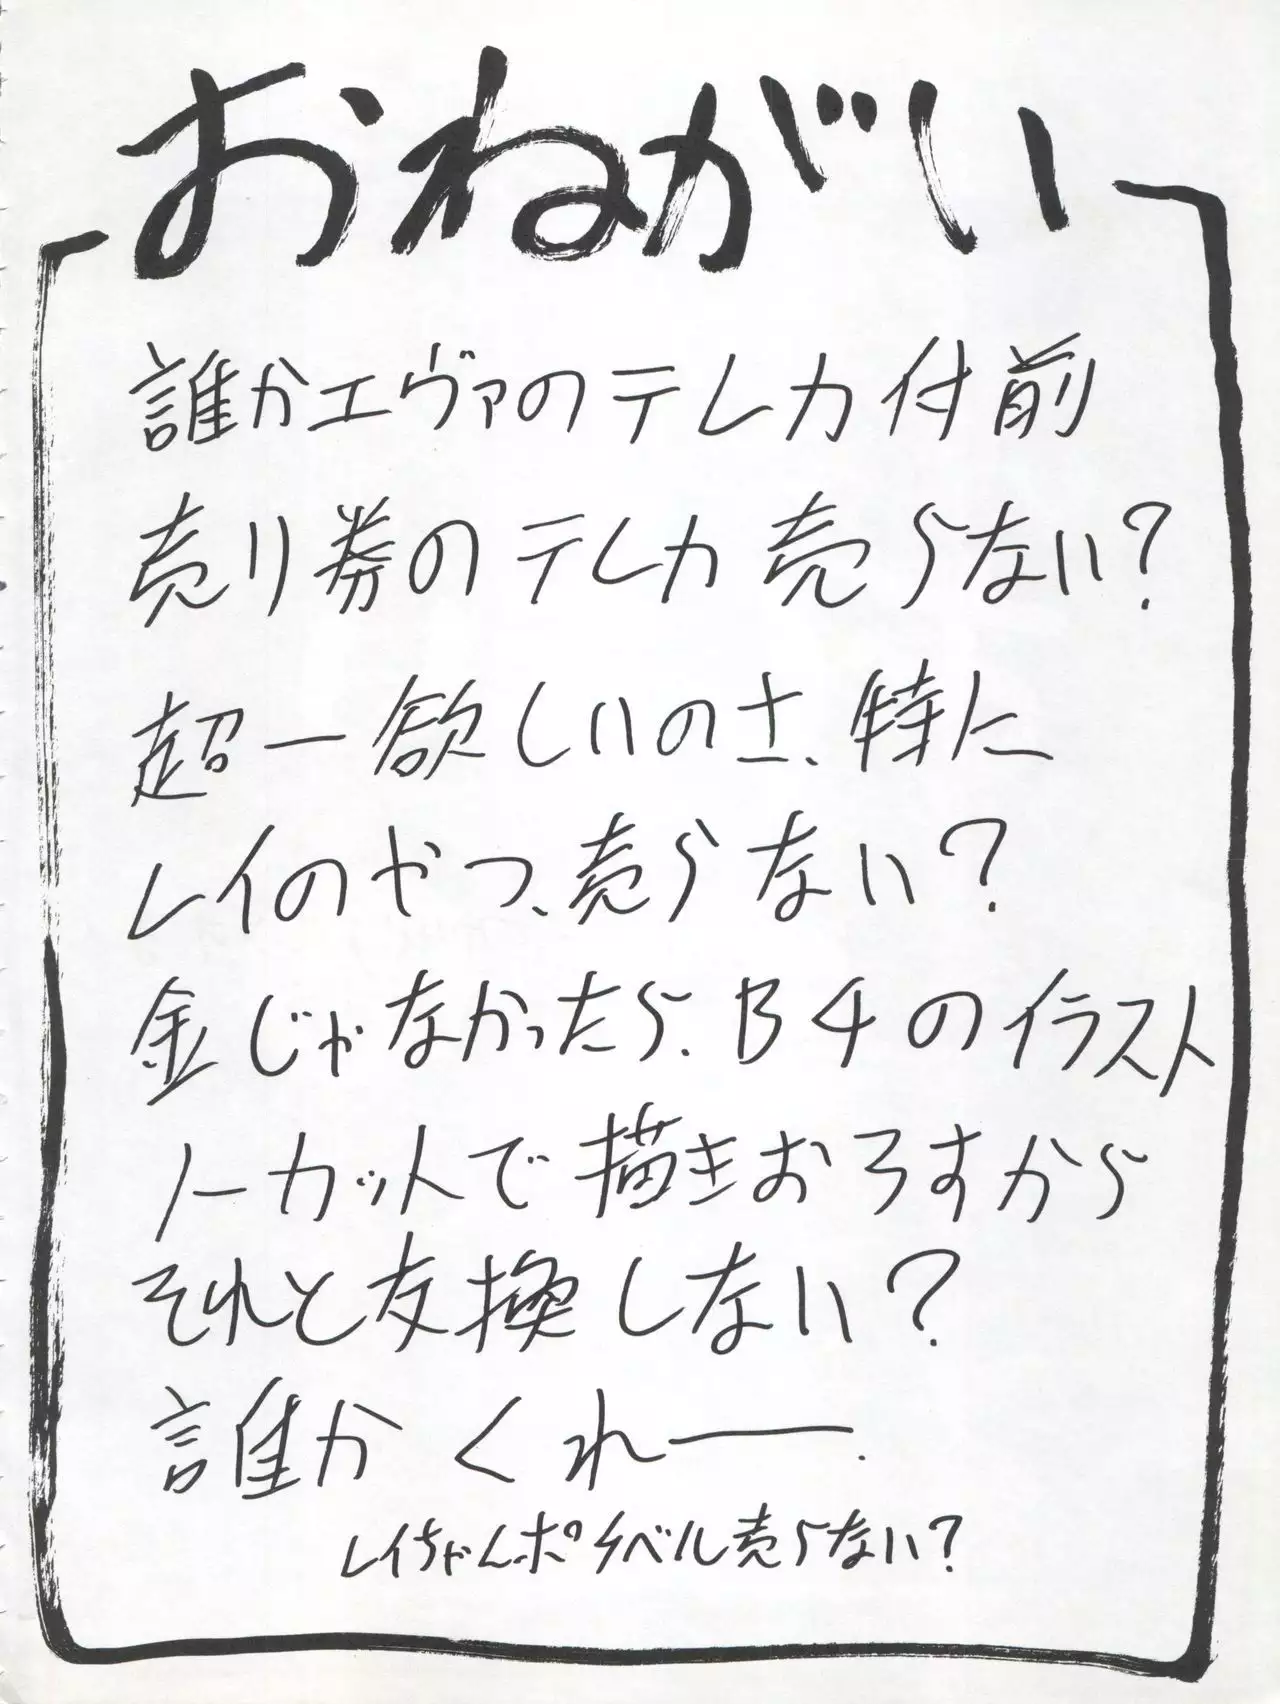 おねがい
誰かエヴァのテレカ付前
売り券のテレカ売らない?
超ー欲しいのヨ、特に
レイのやつ、売らない?
金じゃなかったら、B4のイラスト
ノーカットで描きおろすから
それと交換しない?
誰かくれー.
レイちゃんポリベル売らない?